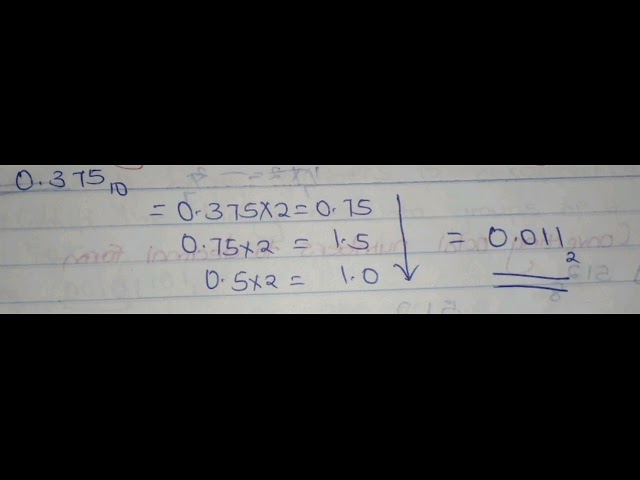 0.375₁₀
= 0.375×2 = 0.75
0.75×2 = 1.5
0.5×2 = 1.0
= 0.011₂